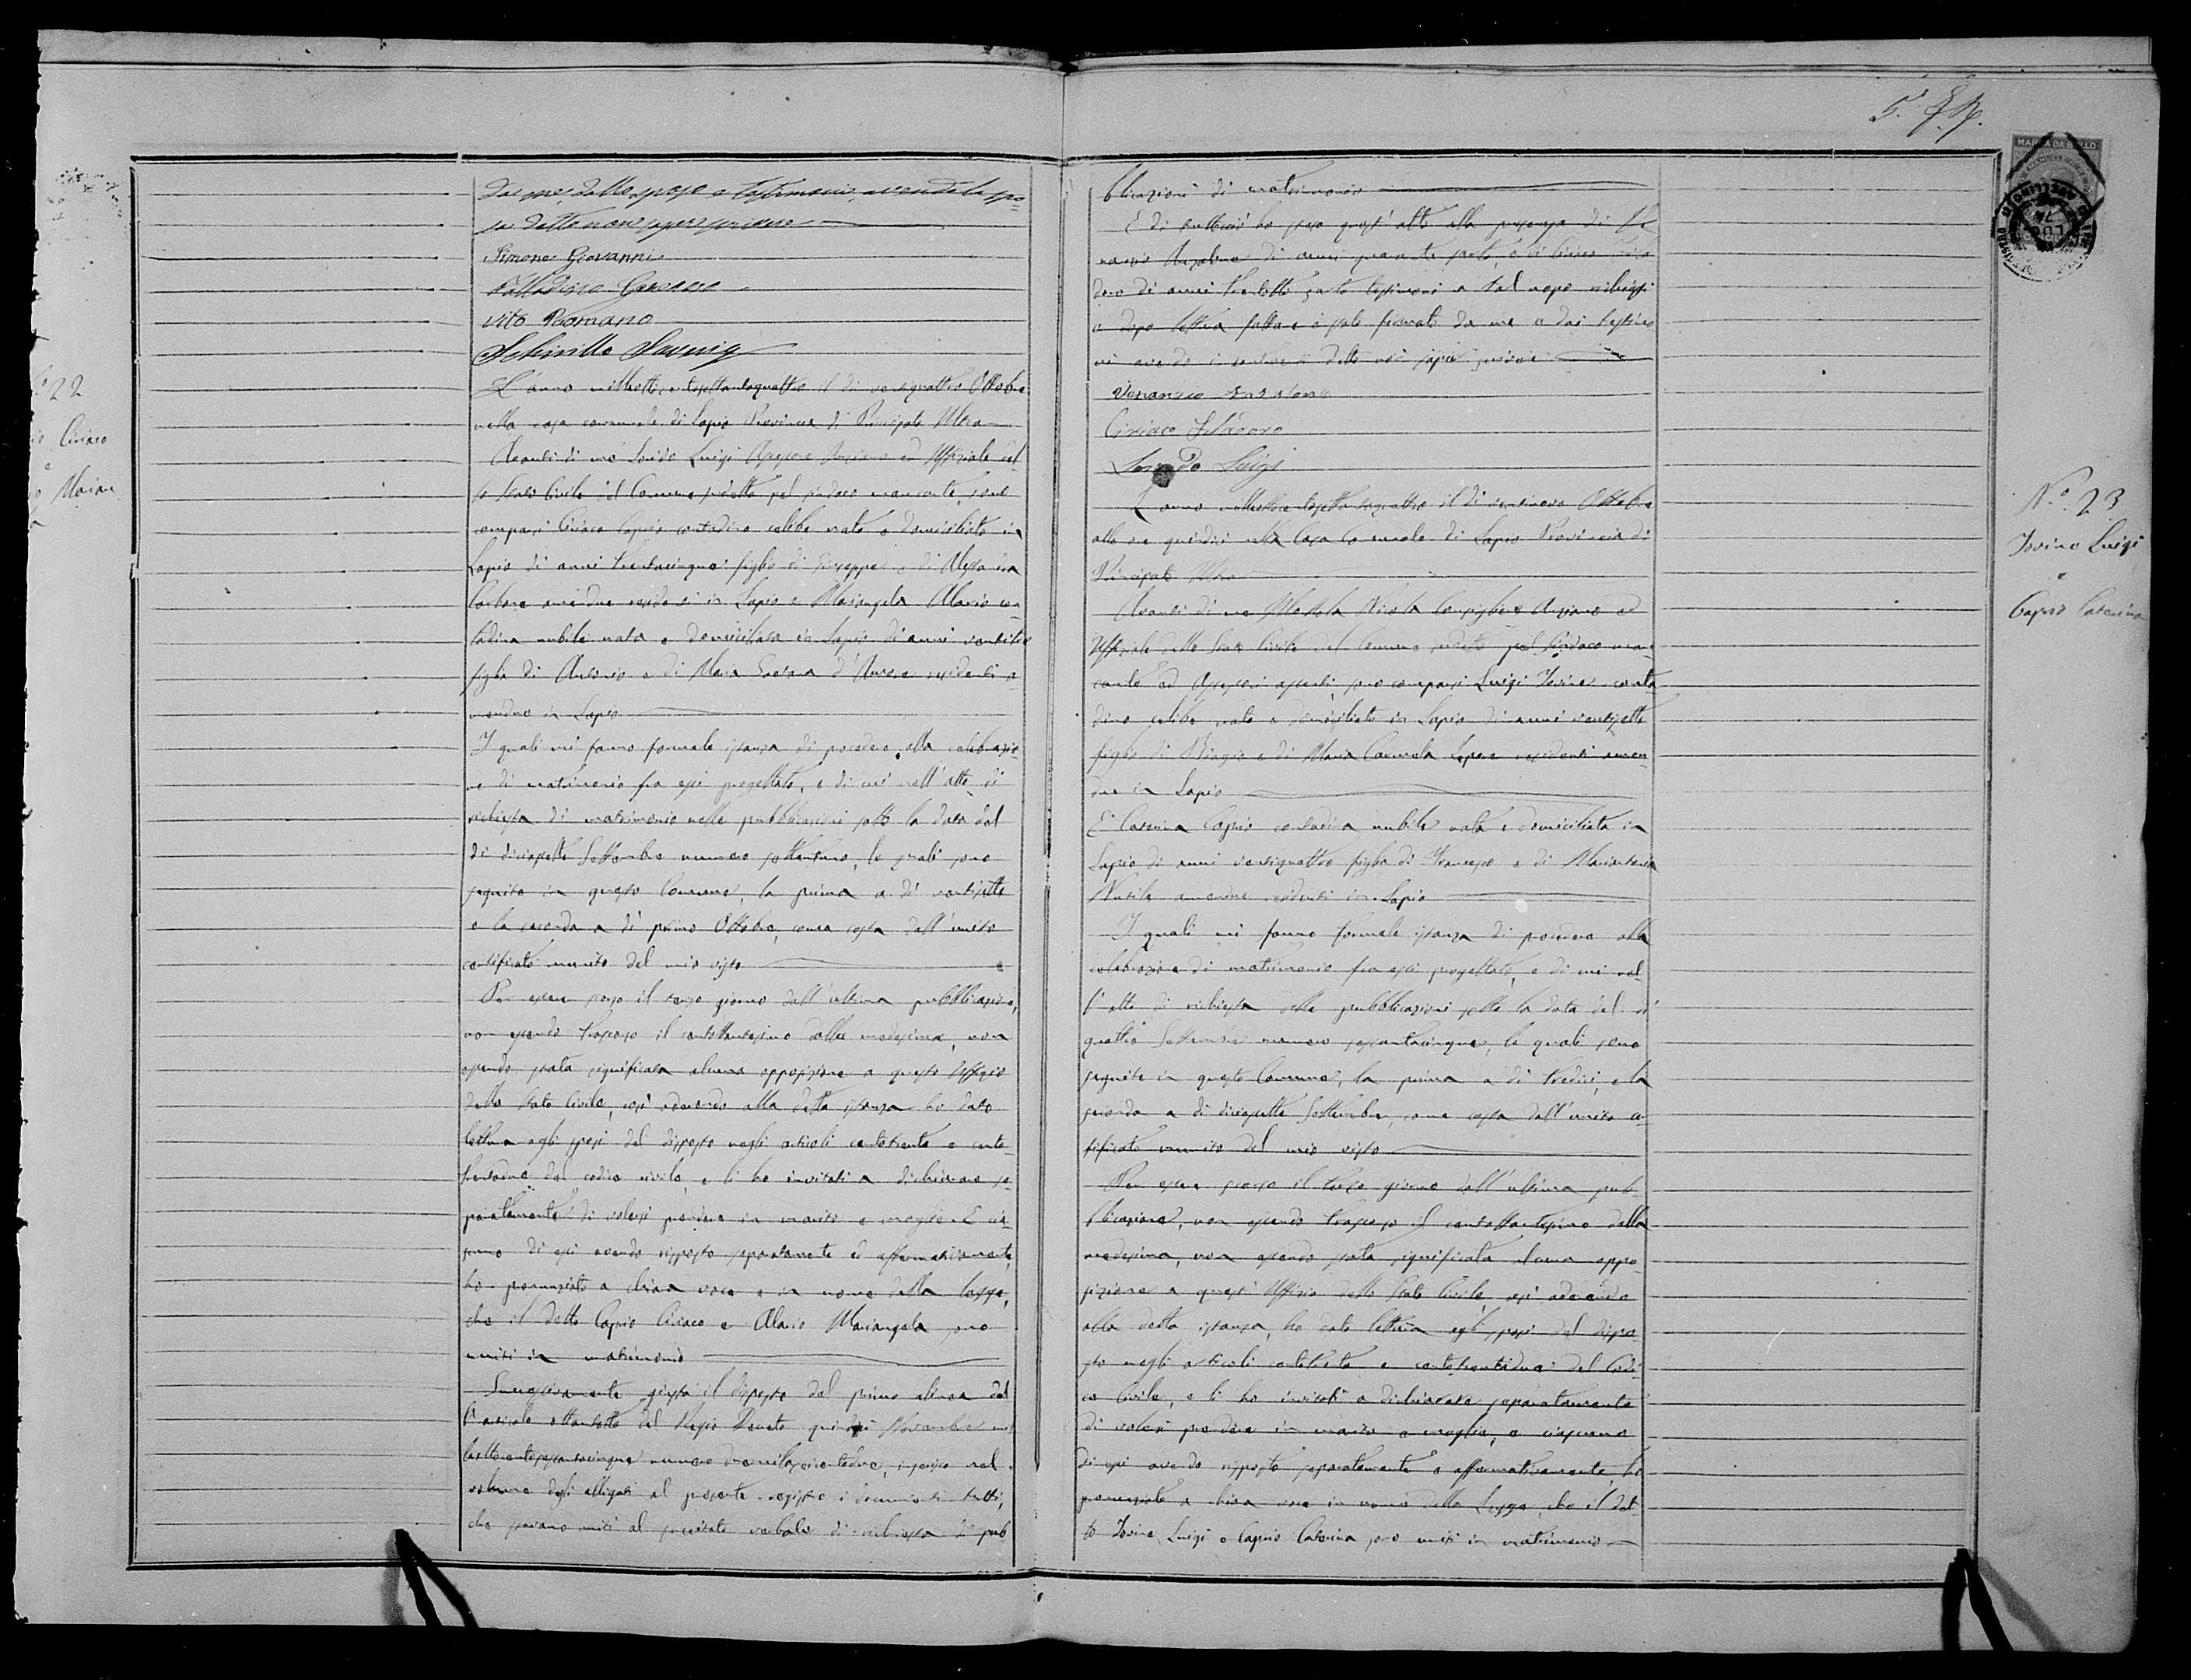 5.
MARCA DA BOLLO
da me, dallo sposo e testimoni, avendo la spo=
sa detto non saper scrivere
Simone Giovanni
Palladino
Vito Romano
Schirillo Saverio
22
Ciriaco
e
Marian
L'anno milleottocentosettantaquattro il di ventiquattro Ottobre
nella casa comunale di Lapio Provincia di Principato Ultra
Avanti di me Luigi Assessore Anziano ed Uffiziale del
lo Stato Civile del Comune sudetto pel sindaco mancante, sono
comparsi Ciriaco Caprio contadino celibe nato e domiciliato in
Lapio di anni trentacinque figlio di Giuseppe e di
Carbone amendue residenti in Lapio e Mariangela Alario con
tadina nubile nata e domiciliata in Lapio di anni
figlia di Antonio e di Maria residenti a=
mendue in Lapio
I quali mi fanno formale istanza di procedere alla celebrazio=
ne di matrimonio fra essi progettato, e di cui nell'atto di
richiesta di matrimonio nelle pubblicazioni sotto la data del
di diciassette Settembre numero settantuno, le quali sono
seguite in questo Comune, la prima a di ventisette
e la seconda a di primo Ottobre, come costa dall'unito
certificato munito del mio visto
Per essere scorso il terzo giorno dall'ultima pubblicazione,
non essendo trascorso il centottantesimo dalle medesime, non
essendo stata significata alcuna opposizione a questo Uffizio
dello Stato Civile, così aderendo alla detta istanza ho dato
lettura agli sposi del disposto negli articoli centotrenta e cento=
trentadue del codice civile, e li ho invitati a dichiarare se=
paratamente di volersi prendere in marito e moglie. E cia=
suno di essi avendo risposto separatamente ed affermativamente,
ho pronunziato a chiara voce e in nome della legge,
che il detto Caprio Ciriaco e Alario Mariangela sono
uniti in matrimonio
Successivamente giusta il disposto dal primo alinea del
l'articolo ottantotto del Regio Decreto quindici Novembre mil
leottocentosessantacinque numero duemilaseicentodue, inserisco nel
volume degli allegati al presente registro i documenti tutti,
che stavano uniti al precitato verbale di richiesta di pub
blicazioni di matrimonio
E di tutto ciò ho steso quest'atto alla presenza di Ve
nanzio di anni quaranta e di Ciriaco
doro di anni trentotto testimoni a tal uopo richiesti
e dopo lettura fattane è stato firmato da me e dai testimo
ni avendo i contraenti detto non saper scrivere
Venanzio
Ciriaco
Luigi
N.° 23
Iovine Luigi
e
Caprio Caterina
L'anno milleottocentosettantaquattro il di ventinove Ottobre
alle ore quindici nella Casa Comunale di Lapio Provincia di
Principato Ultra
Avanti di me Nicola Consigliere Anziano ed
Uffiziale dello Stato Civile del Comune sudetto pel Sindaco man=
cante ed Assessori assenti, sono comparsi Luigi Iovine conta
dino celibe nato e domiciliato in Lapio di anni ventisette
figlio di Biagio e di Maria Carmela Lepore residenti amen
due in Lapio
E Caterina Caprio contadina nubile nata e domiciliata in
Lapio di anni ventiquattro figlia di Francesco e di Mariantonia
amendue residenti in Lapio
I quali mi fanno formale istanza di procedere alla
celebrazione di matrimonio fra essi progettato, e di cui nel
l'atto di richiesta delle pubblicazioni sotto la data del di
quattro Settembre numero sessantacinque, le quali sono
seguite in questo Comune, la prima a di tredici, e la
seconda a di diciassette Settembre, come costa dall'unito cer
tificato munito del mio visto
Per essere scorso il terzo giorno dall'ultima pub
blicazione, non essendo trascorso il centottantesimo dalla
medesima, non essendo stata significata alcuna oppo=
sizione a quest'Uffizio dello Stato Civile, così aderendo
alla detta istanza, ho dato lettura agli sposi del dispo
sto negli articoli centotrenta e centotrentadue del Codi
ce Civile, e li ho invitati a dichiarare separatamente
di volersi prendere in marito e moglie, e ciascuno
di essi avendo risposto separatamente e affermativamente, ho
pronunziato a chiara voce in nome della Legge, che il det
to Iovine Luigi e Caprio Caterina sono uniti in matrimonio